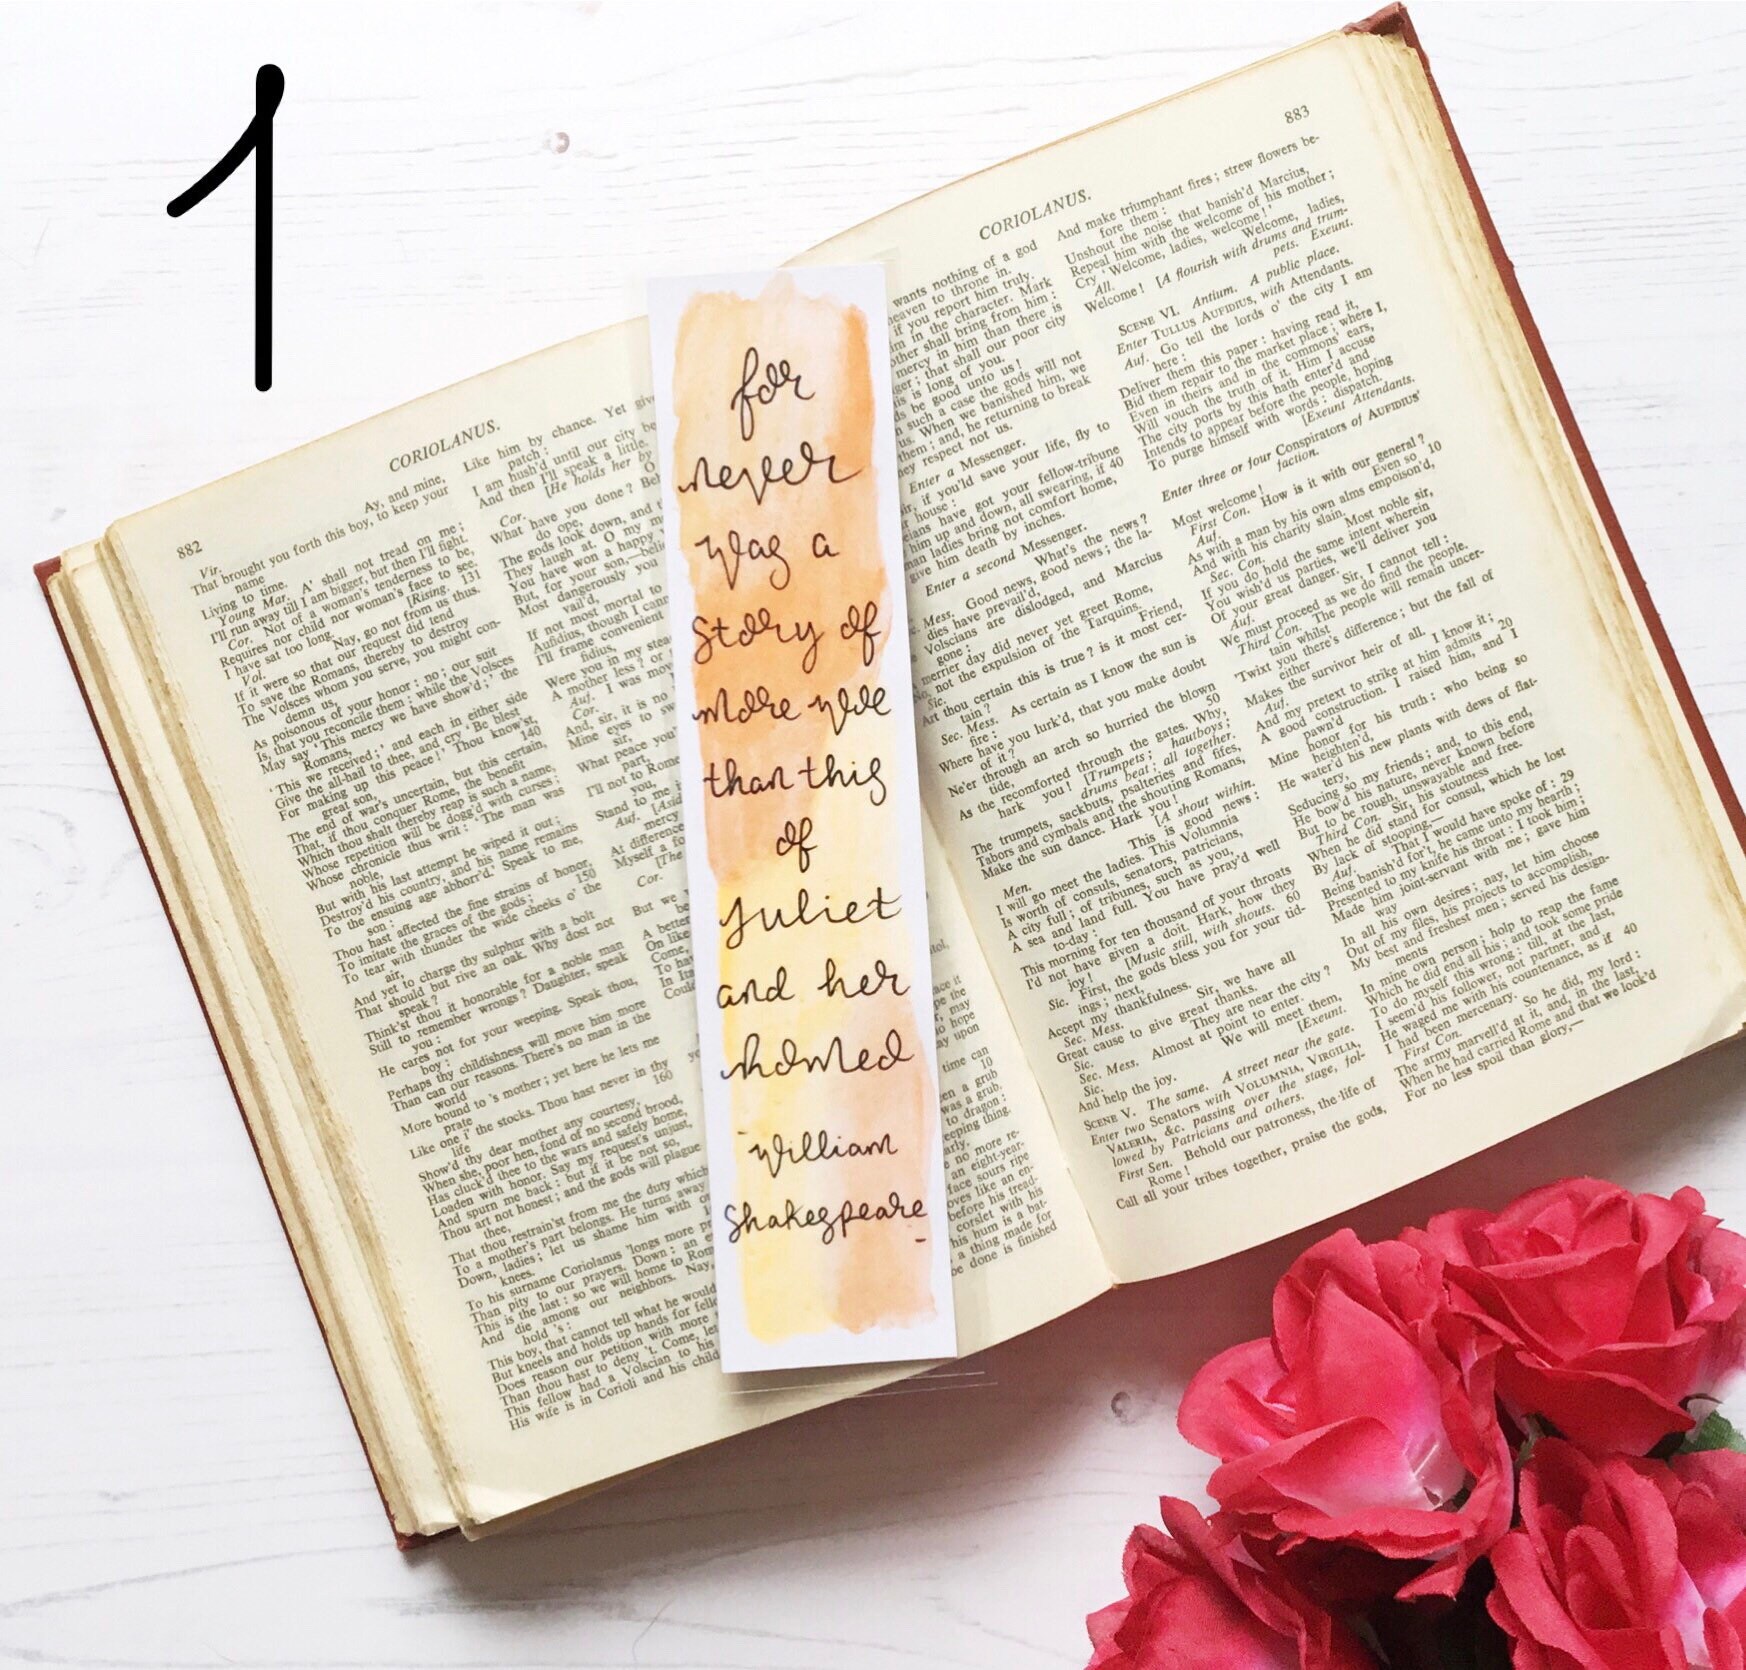 1
882
CORIOLANUS.
Vir. Ay, and mine,
That brought you forth this boy, to keep your
name
Living to time.
Young Mar. A' shall not tread on me;
I'll run away till I am bigger, but then I'll fight.
Cor. Not of a woman's tenderness to be,
Requires nor child nor woman's face to see.
I have sat too long. [Rising. 131
Vol. Nay, go not from us thus.
If it were so that our request did tend
To save the Romans, thereby to destroy
The Volsces whom you serve, you might con-
demn us,
As poisonous of your honour: no; our suit
Is, that you reconcile them: while the Volsces
May say 'This mercy we have show'd;' the
Romans,
'This we received;' and each in either side
Give the all-hail to thee, and cry 'Be blest
For making up this peace!' Thou know'st,
great son, 140
The end of war's uncertain, but this certain,
That, if thou conquer Rome, the benefit
Which thou shalt thereby reap is such a name,
Whose repetition will be dogg'd with curses;
Whose chronicle thus writ: 'The man was
noble,
But with his last attempt he wiped it out;
Destroy'd his country, and his name remains
To the ensuing age abhorr'd.' Speak to me,
son:
Thou hast affected the fine strains of honor,
To imitate the graces of the gods; 150
To tear with thunder the wide cheeks o' the
air,
And yet to charge thy sulphur with a bolt
That should but rive an oak. Why dost not
speak?
Think'st thou it honorable for a noble man
Still to remember wrongs? Daughter, speak
you:
He cares not for your weeping. Speak thou,
boy:
Perhaps thy childishness will move him more
Than can our reasons. There's no man in the
world
More bound to 's mother; yet here he lets me
prate 160
Like one i' the stocks. Thou hast never in thy
life
Show'd thy dear mother any courtesy,
When she, poor hen, fond of no second brood,
Has cluck'd thee to the wars and safely home,
Loaden with honor. Say my request's unjust,
And spurn me back: but if it be not so,
Thou art not honest; and the gods will plague
thee,
That thou restrain'st from me the duty which
To a mother's part belongs. He turns away
Down, ladies; let us shame him with
knees.
To his surname Coriolanus 'longs more
Than pity to our prayers. Down: an
This is the last: so we will home to Rom
And die among our neighbors. Nay,
hold 's:
This boy, that cannot tell what he would
But kneels and holds up hands for fell
Does reason our petition with more
Than thou hast to deny 't. Come, let
This fellow had a Volscian to his
His wife is in Corioli and his child
Like him by chance. Yet giv
patch:
I am hush'd until our city be
And then I'll speak a little.
[He holds her by
Cor.
What have you done? Beh
do ope,
The gods look down, and t
They laugh at. O my m
You have won a happy
But, for your son,—belie
Most dangerously you
vail'd,
If not most mortal to
Aufidius, though I cann
I'll frame convenient
fidius,
Were you in my stea
A mother less? or
Auf. I was mov
Cor.
And, sir, it is no
Mine eyes to sw
sir,
What peace you'
part,
I'll not to Rome
you,
Stand to me i
Auf. [Asid
mercy
At difference
Myself a fo
[The
Cor.
But we
A better
On like
Come,
To ha
In Ita
Could
for
never
was a
story of
more woe
than this
of
Juliet
and her
Romeo
-William
Shakespeare-
CORIOLANUS.
883
wants nothing of a god
heaven to throne in.
if you report him truly.
im in the character. Mark
other shall bring from him:
mercy in him than there is
ger; that shall our poor city
is is long of you.
ds be good unto us!
n such a case the gods will not
us. When we banished him, we
them; and, he returning to break
hey respect not us.
Enter a Messenger.
if you'd save your life, fly to
r house:
eians have got your fellow-tribune
him up and down, all swearing, if 40
man ladies bring not comfort home,
give him death by inches.
Enter a second Messenger.
What's the news?
Mess. Good news, good news; the la-
dies have prevail'd,
Volscians are dislodged, and Marcius
gone:
merrier day did never yet greet Rome,
No, not the expulsion of the Tarquins.
Sic. Friend,
Art thou certain this is true? is it most cer-
tain?
Sec. Mess. As certain as I know the sun is
fire:
Where have you lurk'd, that you make doubt
of it?
Ne'er through an arch so hurried the blown
tide, 50
As the recomforted through the gates. Why,
hark you! [Trumpets; hautboys;
drums beat; all together.
The trumpets, sackbuts, psalteries and fifes,
Tabors and cymbals and the shouting Romans,
Make the sun dance. Hark you!
[A shout within.
Men. This is good news:
I will go meet the ladies. This Volumnia
Is worth of consuls, senators, patricians,
A city full; of tribunes, such as you,
A sea and land full. You have pray'd well
to-day:
This morning for ten thousand of your throats
I'd not have given a doit. Hark, how they
joy! [Music still, with shouts. 60
Sic. First, the gods bless you for your tid-
ings; next,
Accept my thankfulness.
Sec. Mess. Sir, we have all
Great cause to give great thanks.
Sic. They are near the city?
Sec. Mess. Almost at point to enter.
Sic. We will meet them,
And help the joy. [Exeunt.
SCENE V. The same. A street near the gate.
Enter two Senators with VOLUMNIA, VIRGILIA,
VALERIA, &c. passing over the stage, fol-
lowed by Patricians and others.
First Sen. Behold our patroness, the life of
Rome!
Call all your tribes together, praise the gods,
And make triumphant fires; strew flowers be-
fore them:
Unshout the noise that banish'd Marcius,
Repeal him with the welcome of his mother;
Cry 'Welcome, ladies, welcome!'
All. Welcome, ladies,
Welcome! [A flourish with drums and trum-
pets. Exeunt.
SCENE VI. Antium. A public place.
Enter TULLUS AUFIDIUS, with Attendants.
Auf. Go tell the lords o' the city I am
here:
Deliver them this paper: having read it,
Bid them repair to the market place; where I,
Even in theirs and in the commons' ears,
Will vouch the truth of it. Him I accuse
The city ports by this hath enter'd and
Intends to appear before the people, hoping
To purge himself with words: dispatch.
[Exeunt Attendants.
Enter three or four Conspirators of AUFIDIUS'
faction.
Most welcome!
First Con. How is it with our general?
Auf. Even so 10
As with a man by his own alms empoison'd,
And with his charity slain.
Sec. Con. Most noble sir,
If you do hold the same intent wherein
You wish'd us parties, we'll deliver you
Of your great danger.
Auf. Sir, I cannot tell:
We must proceed as we do find the people.
Third Con. The people will remain uncer-
tain whilst
'Twixt you there's difference; but the fall of
either
Makes the survivor heir of all.
Auf. I know it;
And my pretext to strike at him admits 20
A good construction. I raised him, and I
pawn'd
Mine honor for his truth: who being so
heighten'd,
He water'd his new plants with dews of flat-
tery,
Seducing so my friends; and, to this end,
He bow'd his nature, never known before
But to be rough, unswayable and free.
Third Con. Sir, his stoutness
When he did stand for consul, which he lost
By lack of stooping,—
Auf. That I would have spoke of: 29
Being banish'd for't, he came unto my hearth;
Presented to my knife his throat: I took him;
Made him joint-servant with me; gave him
way
In all his own desires; nay, let him choose
Out of my files, his projects to accomplish,
My best and freshest men; served his design-
ments
In mine own person; holp to reap the fame
Which he did end all his; and took some pride
To do myself this wrong: till, at the last,
I seem'd his follower, not partner, and
He waged me with his countenance, as if 40
I had been mercenary.
First Con. So he did, my lord:
The army marvell'd at it, and, in the last,
When he had carried Rome and that we look'd
For no less spoil than glory,—